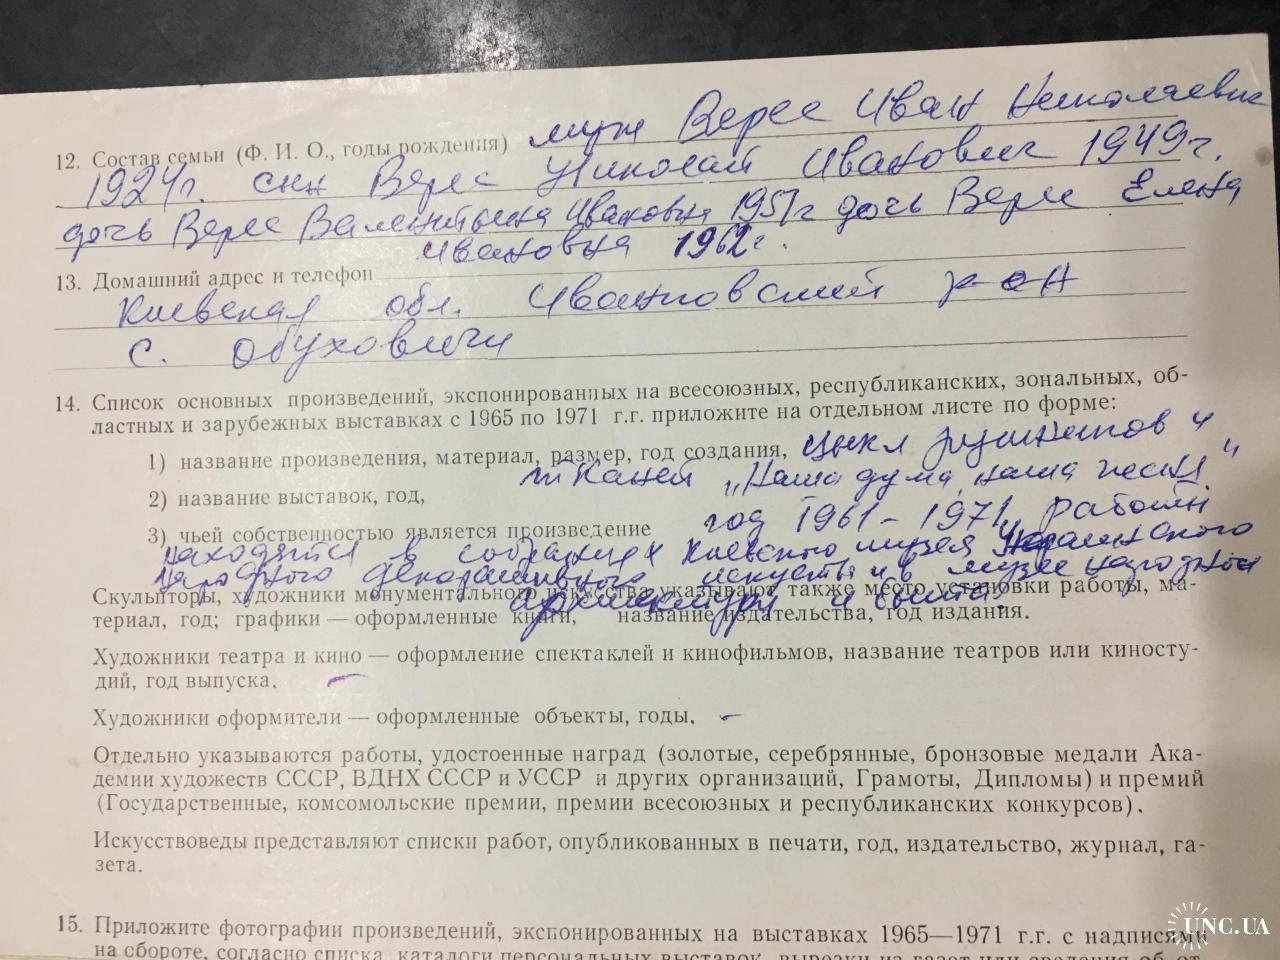 12. Состав семьи (Ф. И. О., годы рождения) муж Верес Иван Николаевич
1924 г. сын Верес Николай Иванович 1949 г.
дочь Верес Валентина Ивановна 1957 г дочь Верес Елена
Ивановна 1962 г.
13. Домашний адрес и телефон
Киевская обл. Иванковский р-он
с. Обуховичи
14. Список основных произведений, экспонированных на всесоюзных, республиканских, зональных, об-
ластных и зарубежных выставках с 1965 по 1971 г.г. приложите на отдельном листе по форме:
1) название произведения, материал, размер, год создания, Цикл рушныков и
тканей „Наша дума, наша песня"
2) название выставок, год,
3) чьей собственностью является произведение год 1961-1971, работы
находятся в собраниях Киевского музея Украинского
народного декоративного искусства и в музее народной
архитектуры и быта.
Скульпторы, художники монументального искусства указывают также место установки работы, ма-
териал, год; графики — оформленные книги, название издательства, год издания.
Художники театра и кино — оформление спектаклей и кинофильмов, название театров или киносту-
дий, год выпуска. —
Художники оформители — оформленные объекты, годы. —
Отдельно указываются работы, удостоенные наград (золотые, серебрянные, бронзовые медали Ака-
демии художеств СССР, ВДНХ СССР и УССР и других организаций, Грамоты, Дипломы) и премий
(Государственные, комсомольские премии, премии всесоюзных и республиканских конкурсов).
Искусствоведы представляют списки работ, опубликованных в печати, год, издательство, журнал, га-
зета.
15. Приложите фотографии произведений, экспонированных на выставках 1965—1971 г.г. с надписями
на обороте, согласно списка, каталоги персональных выставок, вырезки из газет или сведения об от-
UNC.UA